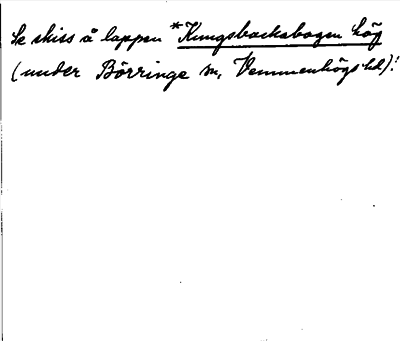 Se skiss å lappen *Kungsbacksbogen hög
(under Börringe sn, Vemmenhögs hd)!